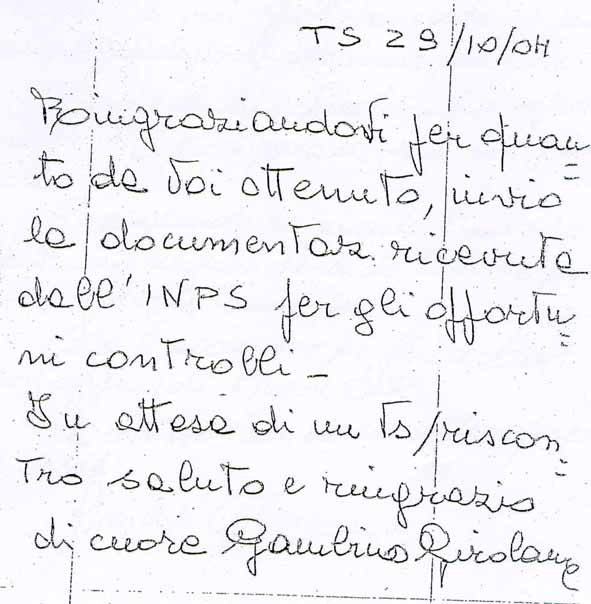 TS 29/10/04
Ringraziandovi per quan=
to da Voi ottenuto, invio
la documentaz. ricevuta
dall'INPS per gli opportu=
ni controlli-
In attesa di un Vs/riscon=
tro saluto e ringrazio
di cuore Gambino Girolamo